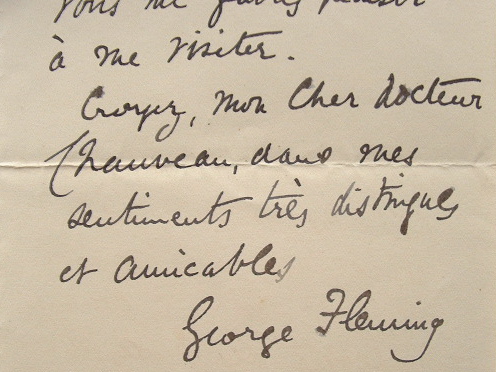 Vous me
à me visiter.
Croyez, mon Cher docteur
Chauveau, dans mes
sentiments très distingués
et amicables
George Fleming